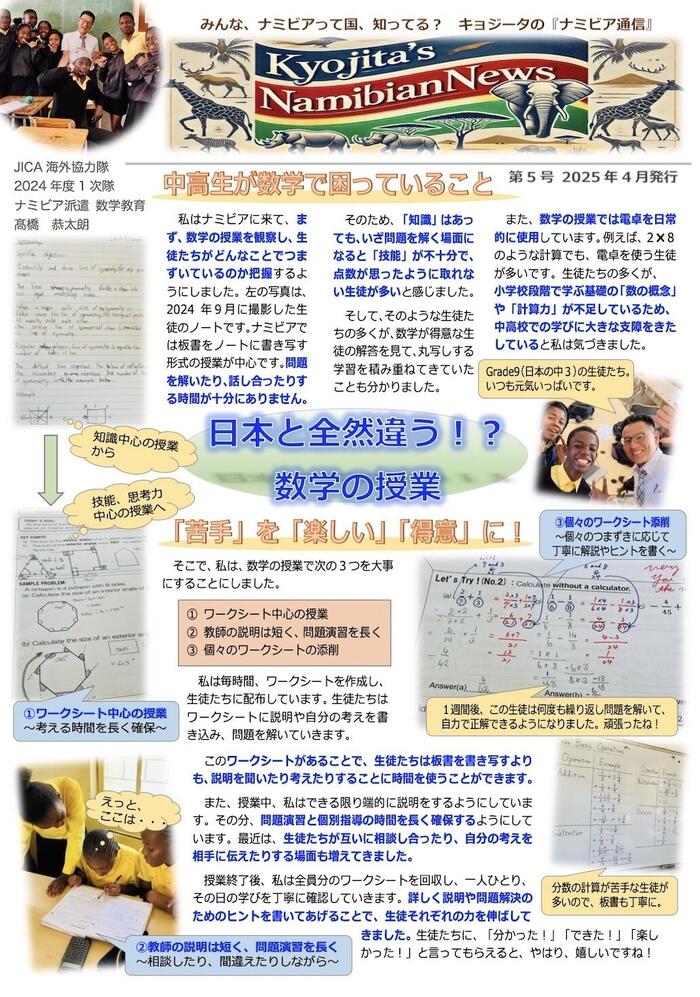 みんな、ナミビアって国、知ってる？　キョジータの『ナミビア通信』
Kyojita's
NamibianNews
JICA 海外協力隊
2024 年度 1 次隊
ナミビア派遣 数学教育
髙橋　恭太朗
中高生が数学で困っていること
第５号 2025 年 4 月発行
私はナミビアに来て、ま
ず、数学の授業を観察し、生
徒たちがどんなことでつま
ずいているのか把握するよ
うにしました。左の写真は、
2024 年 9 月に撮影した生
徒のノートです。ナミビアで
は板書をノートに書き写す
形式の授業が中心です。問題
を解いたり、話し合ったりす
る時間が十分にありません。
そのため、「知識」はあっ
ても、いざ問題を解く場面に
なると「技能」が不十分で、
点数が思ったように取れな
い生徒が多いと感じました。
そして、そのような生徒た
ちの多くが、数学が得意な生
徒の解答を見て、丸写しする
学習を積み重ねてきていた
ことも分かりました。
また、数学の授業では電卓を日常
的に使用しています。例えば、2×8
のような計算でも、電卓を使う生徒
が多いです。生徒たちの多くが、
小学校段階で学ぶ基礎の「数の概念」
や「計算力」が不足しているため、
中高校での学びに大きな支障をきた
していると私は気づきました。
Grade9(日本の中３)の生徒たち。
いつも元気いっぱいです。
知識中心の授業
から
技能、思考力
中心の授業へ
日本と全然違う！？
数学の授業
「苦手」を「楽しい」「得意」に！
そこで、私は、数学の授業で次の３つを大事
にすることにしました。
① ワークシート中心の授業
② 教師の説明は短く、問題演習を長く
③ 個々のワークシートの添削
③個々のワークシート添削
～個々のつまずきに応じて
丁寧に解説やヒントを書く～
TODAY'S GOAL:
KEY POINTS:
SAMPLE PROBLEM:
A octagon is a polygon with 8 sides.
(a) Calculate the size of an interior angle of
(b) Calculate the size of an exterior an
①ワークシート中心の授業
～考える時間を長く確保～
Let's Try 1 (No.2) : Calculate without a calculator.
Answer(a)
Answer(b)
私は毎時間、ワークシートを作成し、
生徒たちに配布しています。生徒たちは
ワークシートに説明や自分の考えを書
き込み、問題を解いていきます。
１週間後、この生徒は何度も繰り返し問題を解いて、
自力で正解できるようになりました。頑張ったね！
このワークシートがあることで、生徒たちは板書を書き写すより
も、説明を聞いたり考えたりすることに時間を使うことができます。
また、授業中、私はできる限り端的に説明をするようにしていま
す。その分、問題演習と個別指導の時間を長く確保するようにして
います。最近は、生徒たちが互いに相談し合ったり、自分の考えを
相手に伝えたりする場面も増えてきました。
Operation
Example
Addition
Subtraction
えっと、
ここは・・・
分数の計算が苦手な生徒が
多いので、板書も丁寧に。
授業終了後、私は全員分のワークシートを回収し、一人ひとり、
その日の学びを丁寧に確認していきます。詳しく説明や問題解決の
ためのヒントを書いてあげることで、生徒それぞれの力を伸ばして
きました。生徒たちに、「分かった！」「できた！」「楽し
かった！」と言ってもらえると、やはり、嬉しいですね！
②教師の説明は短く、問題演習を長く
～相談したり、間違えたりしながら～